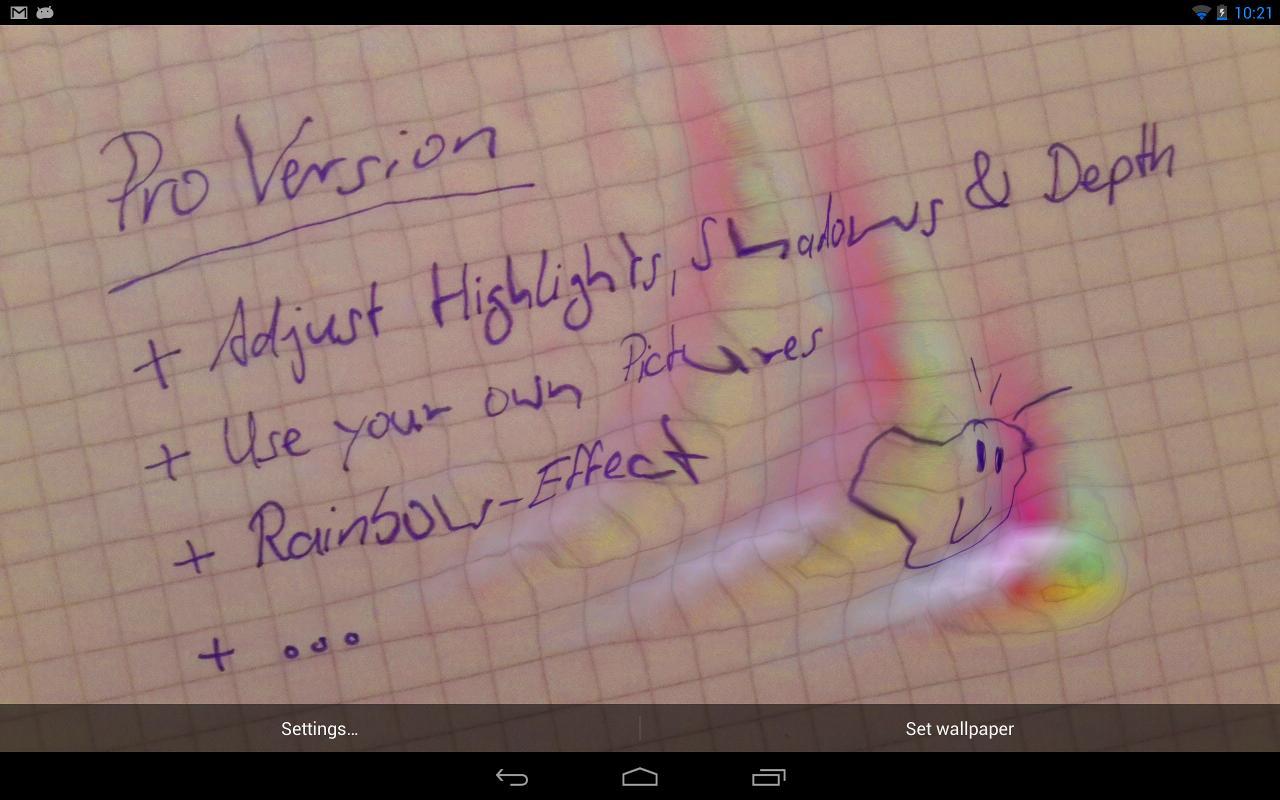 10:21
Pro Version
+ Adjust Highlights, Shadows & Depth
+ Use your own Pictures
+ Rainbow-Effect
+ ...
Settings...
Set wallpaper